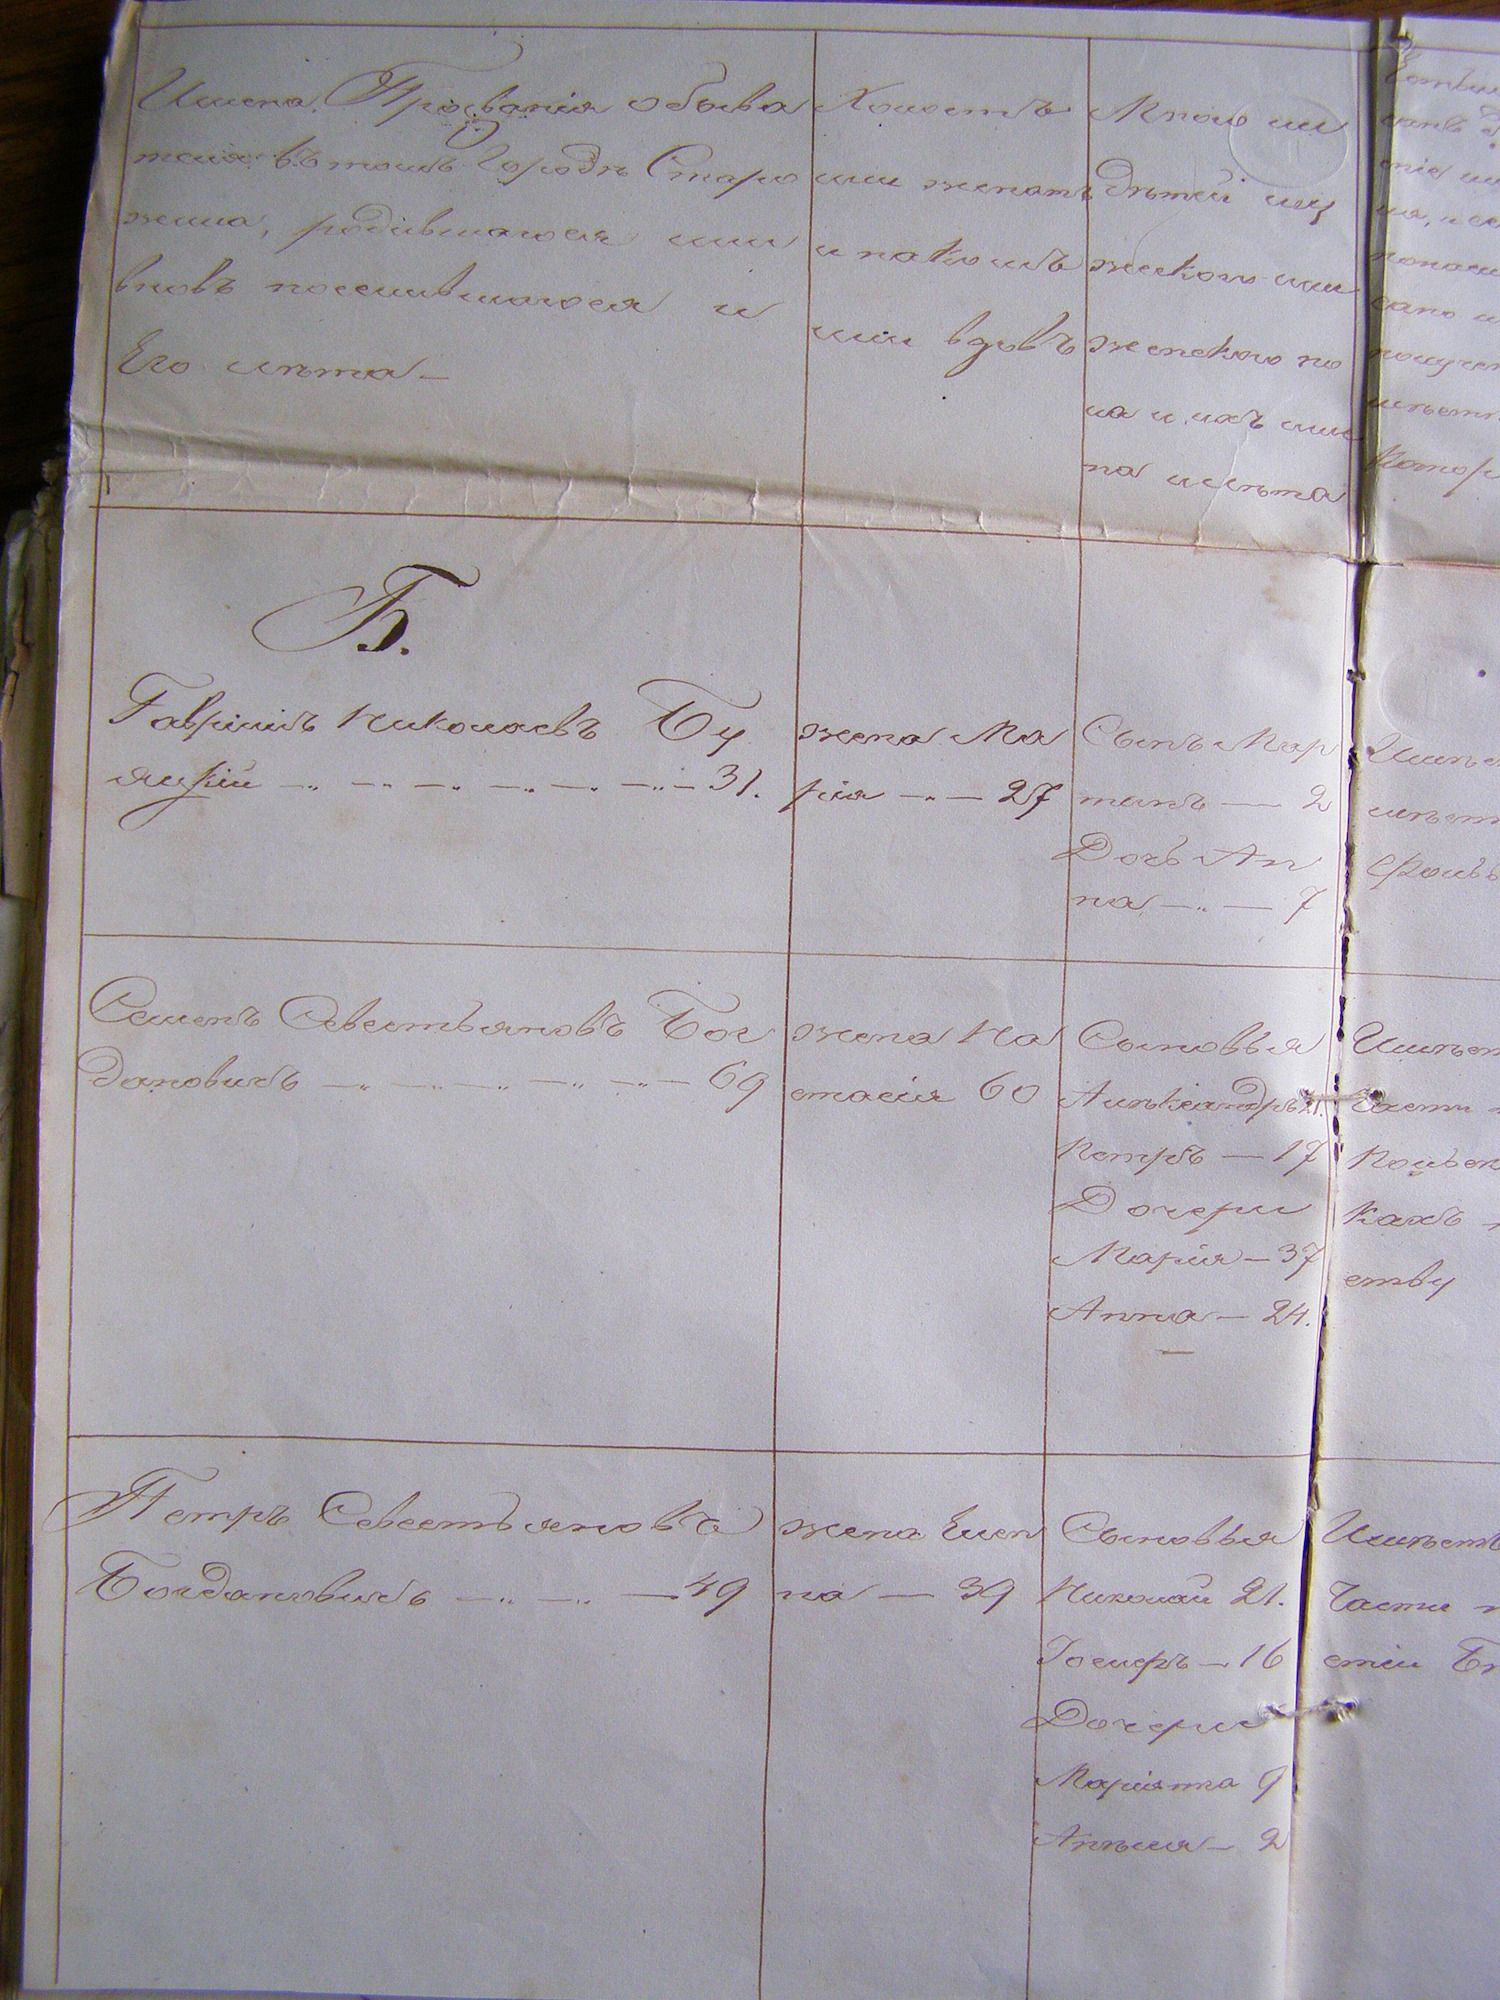 Имена, Прозванія обыва
теля въ томъ Городѣ Старо
жила, родившагося или
вновь поселившагося и
Его лѣта —
Холостъ
или женатъ
и на комъ
или вдовъ
Много ли
дѣтей му
жескаго или
женскаго по
ла и ихъ име
на и лѣта
Б.
Гавріилъ Николаевъ Бу
яцкій — 31.
жена Ма
рія — 27
Сынъ Мар
тинъ — 2
Дочь Ан
на — 7
Семенъ Севестьяновъ Бог
дановичъ — 69
жена На
стасія 60
Сыновья
Алѣксандръ 21.
Петръ — 17
Дочери
Марія — 37
Анна — 24.
части
кахъ
ству
Петръ Севестьяновъ
Богдановичъ — 49
жена Елен
на — 39
Сыновья
Николай 21.
Іосифъ — 16
Дочери
Маріянна 9
Анѣля — 2
Имѣетъ
части